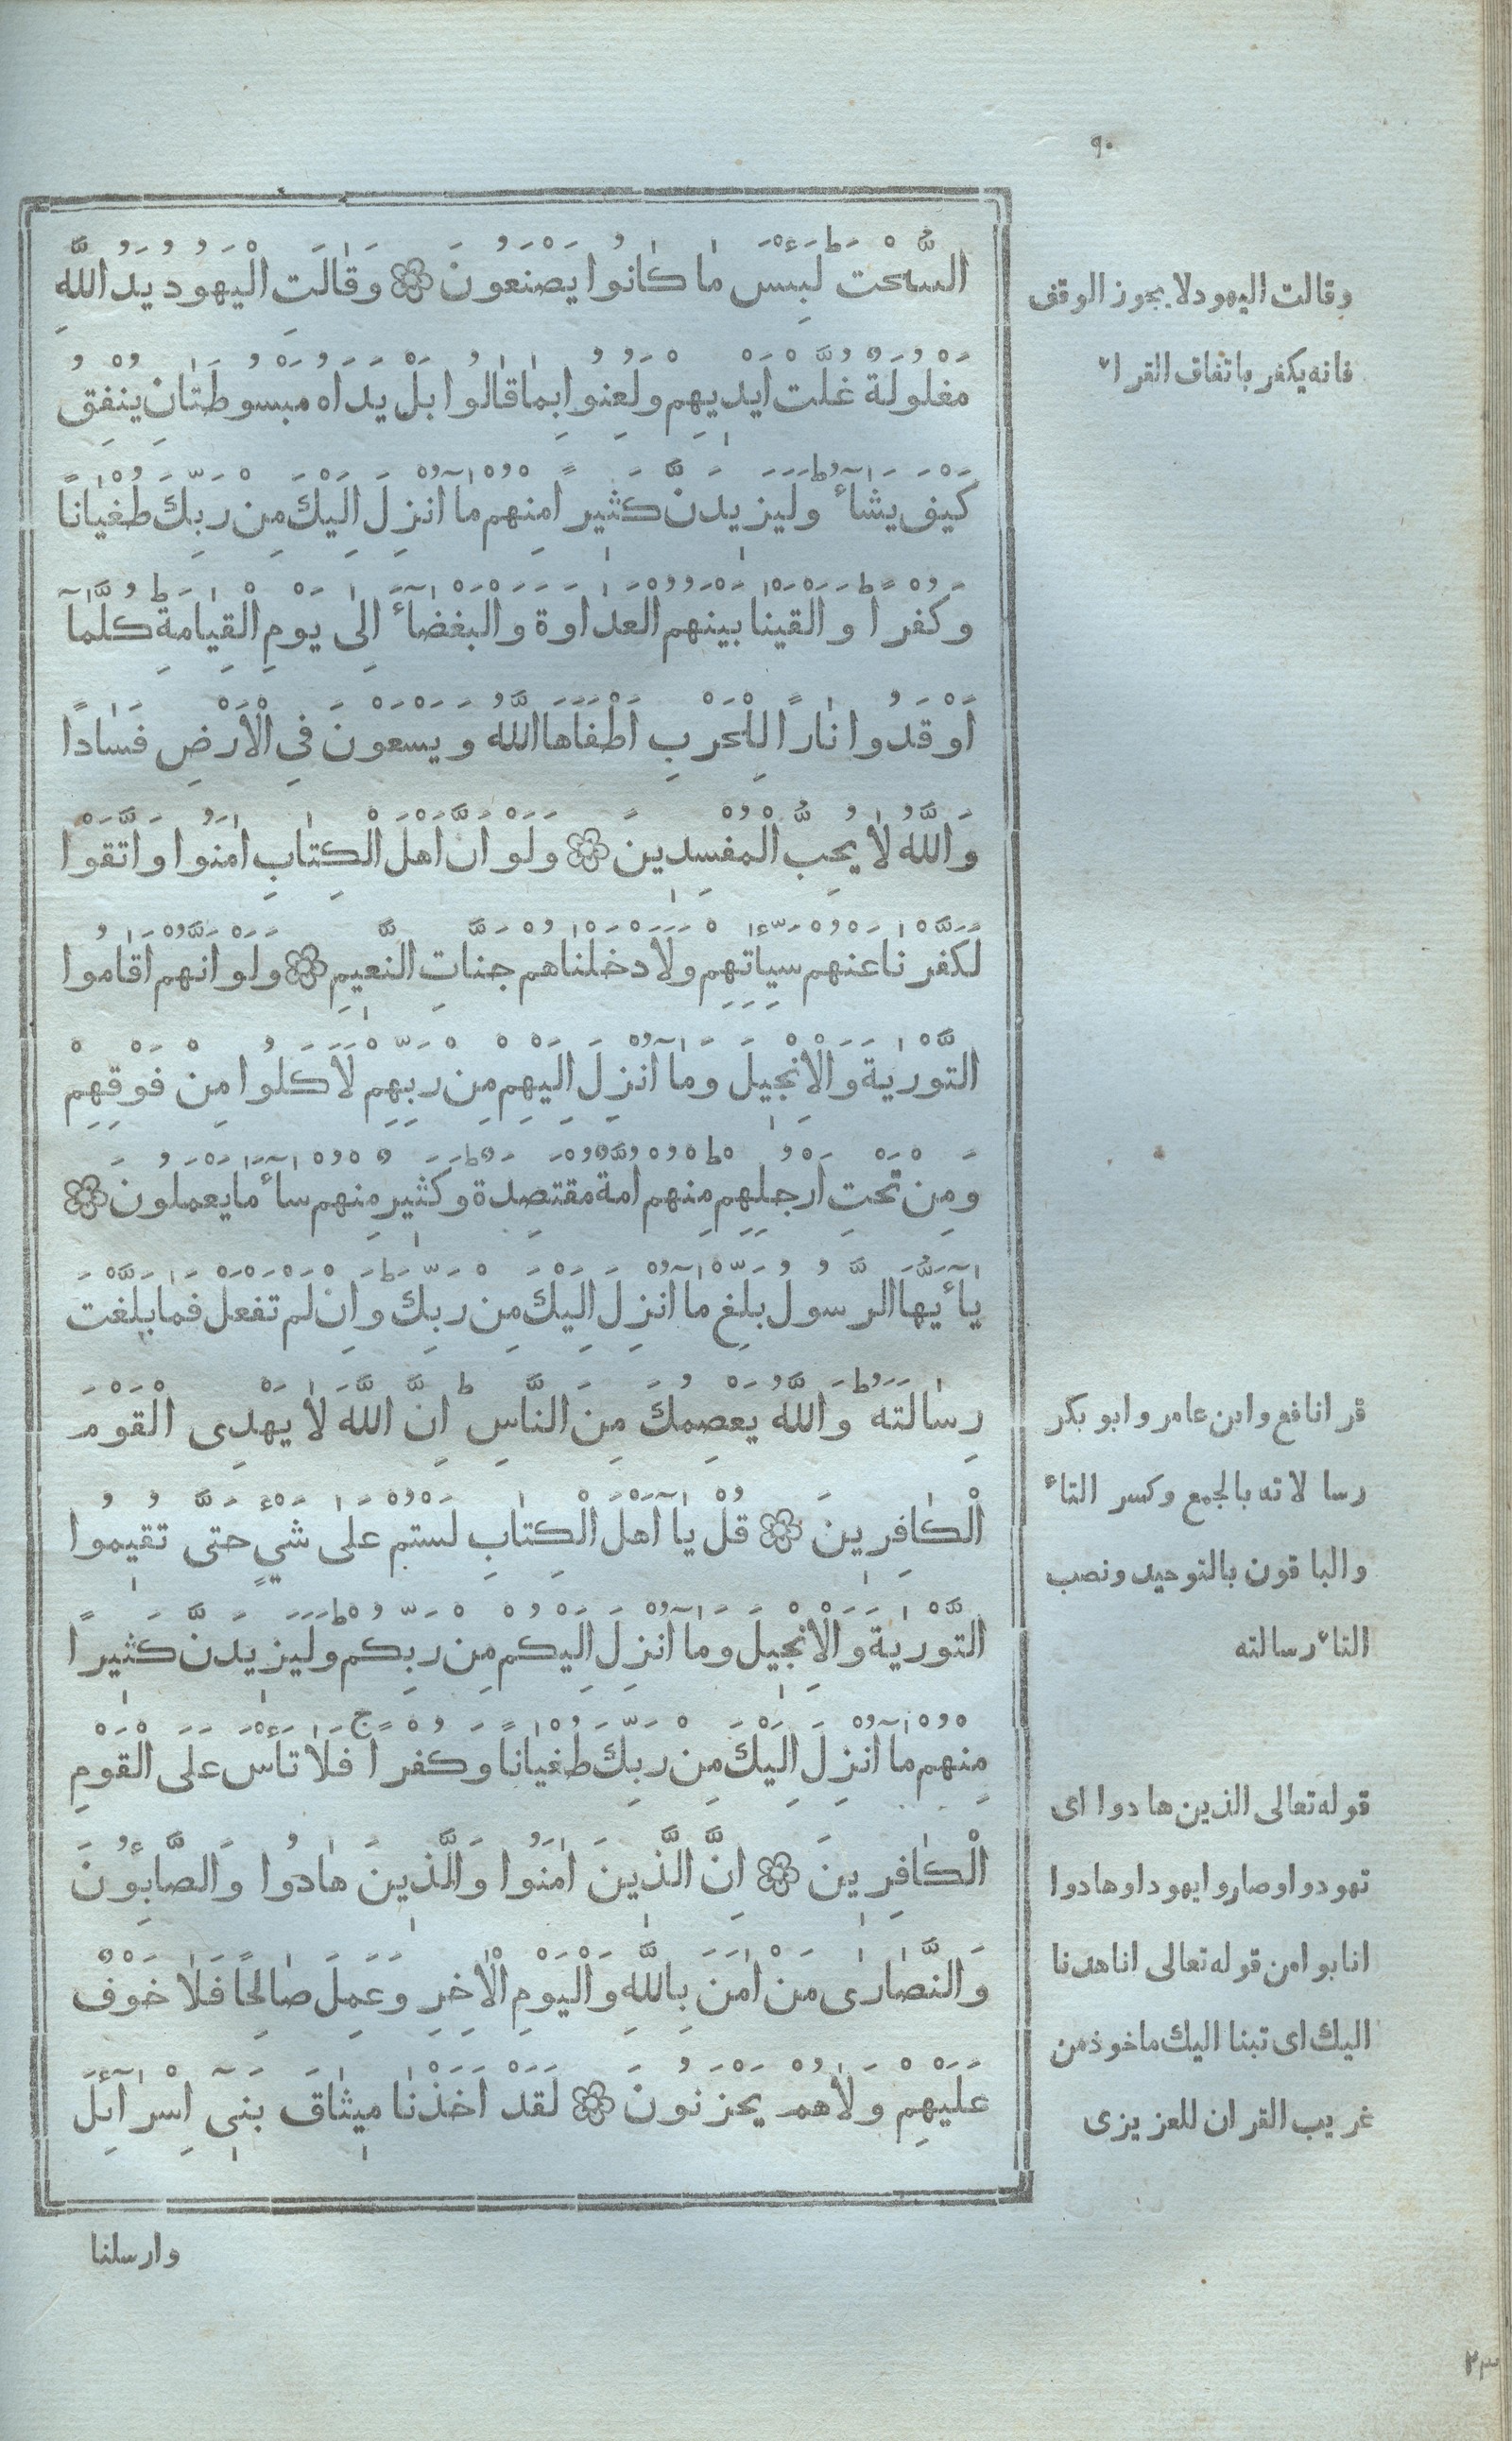 ٩٠
السُّحْتَ ط لَبِئْسَ مٰا كٰانُوا يَصْنَعُونَ ۞ وَقٰالَتِ الْيَهُودُ يَدُ اللَّهِ
مَغْلُولَةٌ غُلَّتْ اَيْدِيهِمْ وَلُعِنُوا بِمٰا قٰالُوا بَلْ يَدَاهُ مَبْسُوطَتٰانِ يُنْفِقُ
كَيْفَ يَشٰآءُ ط وَلَيَزِيدَنَّ كَثِيرًا مِنْهُمْ مٰآ اُنْزِلَ اِلَيْكَ مِنْ رَبِّكَ طُغْيٰانًا
وَكُفْرًا ط وَاَلْقَيْنٰا بَيْنَهُمُ الْعَدٰاوَةَ وَالْبَغْضٰآءَ اِلٰى يَوْمِ الْقِيٰامَةِ ط كُلَّمٰآ
اَوْقَدُوا نٰارًا لِلْحَرْبِ اَطْفَاَهَا اللَّهُ وَيَسْعَوْنَ فِى الْاَرْضِ فَسٰادًا
وَاللَّهُ لٰا يُحِبُّ الْمُفْسِدِينَ ۞ وَلَوْ اَنَّ اَهْلَ الْكِتٰابِ اٰمَنُوا وَاتَّقَوْا
لَكَفَّرْنٰا عَنْهُمْ سَيِّاٰتِهِمْ وَلَاَدْخَلْنٰاهُمْ جَنَّاتِ النَّعِيمِ ۞ وَلَوْ اَنَّهُمْ اَقٰامُوا
التَّوْرٰيةَ وَالْاِنْجِيلَ وَمٰآ اُنْزِلَ اِلَيْهِمْ مِنْ رَبِّهِمْ لَاَكَلُوا مِنْ فَوْقِهِمْ
وَمِنْ تَحْتِ اَرْجُلِهِمْ ط مِنْهُمْ اُمَّةٌ مُقْتَصِدَةٌ ط وَكَثِيرٌ مِنْهُمْ سٰآءَ مٰا يَعْمَلُونَ ۞
يٰآءَيُّهَا الرَّسُولُ بَلِّغْ مٰآ اُنْزِلَ اِلَيْكَ مِنْ رَبِّكَ ط وَاِنْ لَمْ تَفْعَلْ فَمٰا بَلَّغْتَ
رِسٰالَتَهُ ط وَاللَّهُ يَعْصِمُكَ مِنَ النَّاسِ ط اِنَّ اللَّهَ لٰا يَهْدِى الْقَوْمَ
الْكٰافِرِينَ ۞ قُلْ يٰآ اَهْلَ الْكِتٰابِ لَسْتُمْ عَلٰى شَيْءٍ حَتَّى تُقِيمُوا
التَّوْرٰيةَ وَالْاِنْجِيلَ وَمٰآ اُنْزِلَ اِلَيْكُمْ مِنْ رَبِّكُمْ ط وَلَيَزِيدَنَّ كَثِيرًا
مِنْهُمْ مٰآ اُنْزِلَ اِلَيْكَ مِنْ رَبِّكَ طُغْيٰانًا وَكُفْرًا ج فَلٰا تَأْسَ عَلَى الْقَوْمِ
الْكٰافِرِينَ ۞ اِنَّ الَّذِينَ اٰمَنُوا وَالَّذِينَ هٰادُوا وَالصَّابِئُونَ
وَالنَّصٰارٰى مَنْ اٰمَنَ بِاللَّهِ وَالْيَوْمِ الْاٰخِرِ وَعَمِلَ صٰالِحًا فَلٰا خَوْفٌ
عَلَيْهِمْ وَلٰا هُمْ يَحْزَنُونَ ۞ لَقَدْ اَخَذْنٰا مِيثٰاقَ بَنِىٓ اِسْرٰآئِلَ
وارسلنا
وقالت اليهود لا يجوز الوقف
فانه يكفر باتفاق القراء
قرا نافع وابن عامر وابو بكر
رسالاته بالجمع وكسر التاء
والباقون بالتوحيد ونصب
التاء رسالته
قوله تعالى الذين هادوا اى
تهودوا وصاروا يهودا وهادوا
انابوا من قوله تعالى انا هدنا
اليك اى تبنا اليك ماخوذ من
غريب القران للعزيزى
٢٣